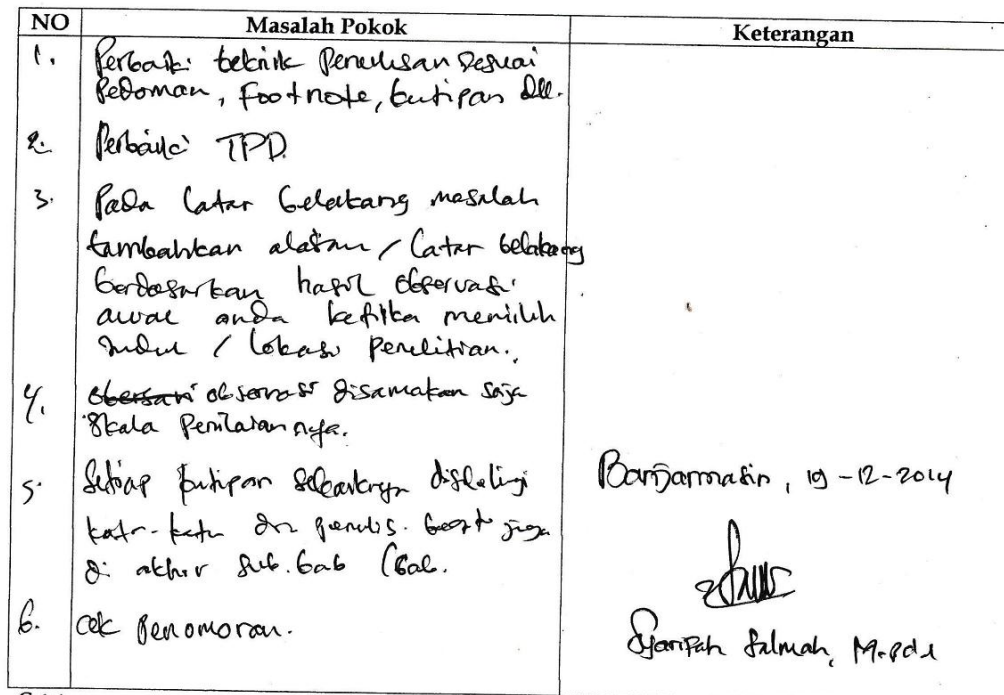 NO Masalah Pokok Keterangan
1. Perbaiki teknik Penulisan sesuai
Pedoman, Footnote, kutipan dll.
2. Perbaiki TPD
3. Pada latar belakang masalah
tambahkan alasan / latar belakang
berdasarkan hasil observasi
awal anda ketika memilih
judul / lokasi penelitian.
4. obersavi observasi disamakan saja
skala Penilaiannya.
5. Setiap kutipan sebaiknya diselingi
kata-kata dr penulis. begitu juga
di akhir sub.bab / bab.
6. cek penomoran.
Banjarmasin, 19-12-2014
Syarifah Salmah, M.Pd.I